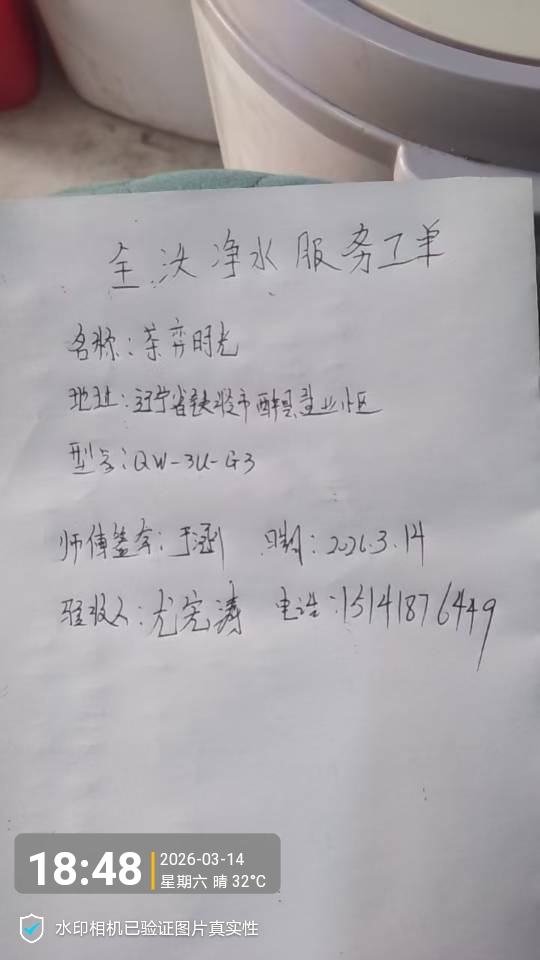 全汏净水服务工单
名称：茶弈时光
地址：辽宁省铁岭市 小区
型号：QW-3U-G3
师傅签字：于涵 日期：2026.3.14
验收人：尤宪涛 电话：15141876449
18:48
2026-03-14
星期六 晴 32°C
水印相机已验证图片真实性